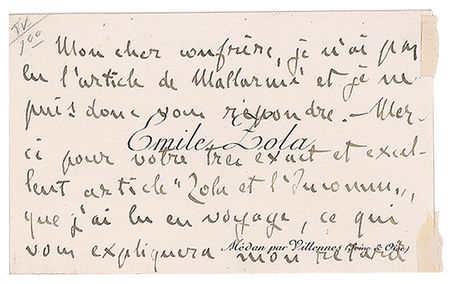 IV
100
Mon cher confrère, je n'ai pas
lu l'article de Mallarmé et je ne
puis donc vous répondre. — Mer-
Emile Zola
ci pour votre très exact et excel-
lent article "Zola et l'Inconnu",
que j'ai lu en voyage, ce qui
Médan par Villennes (Seine & Oise)
vous expliquera mon retard